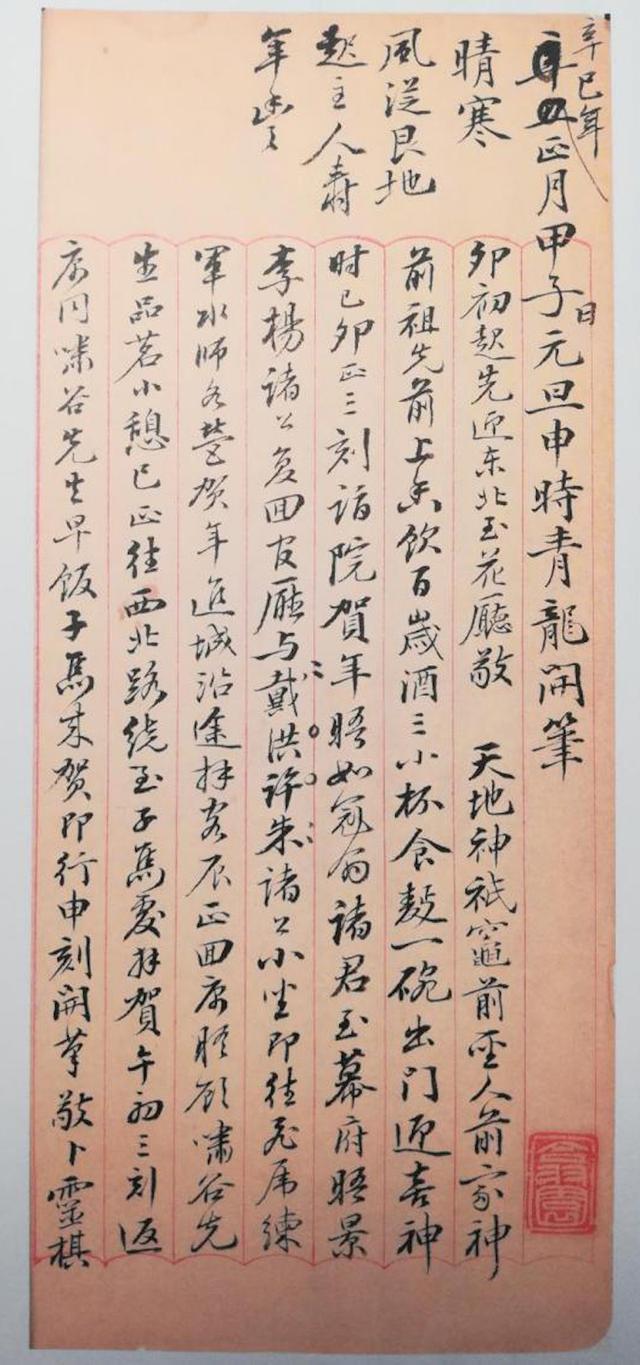 辛巳年
正月甲子日元旦申時青龍開筆
晴寒
風從艮地
起主人壽
年豊
卯初起先迎东北至花廳敬 天地神祇竈前聖人前家神
前祖先前上香飲百歲酒三小杯食麫一碗出门迎喜神
时已卯正三刻詣院賀年晤如冠翁諸君至幕府晤景
李楊諸公复回官廳与戴洪许朱諸公小坐即往飛虎練
軍水师各营贺年進城沿途拜客辰正回寓晤顾嘯谷先
生品茗小憩巳正往西北路绕至子馬處拜賀午初三刻返
寓同嘯谷先生早饭子馬来贺即行申刻開筆敬卜靈棋